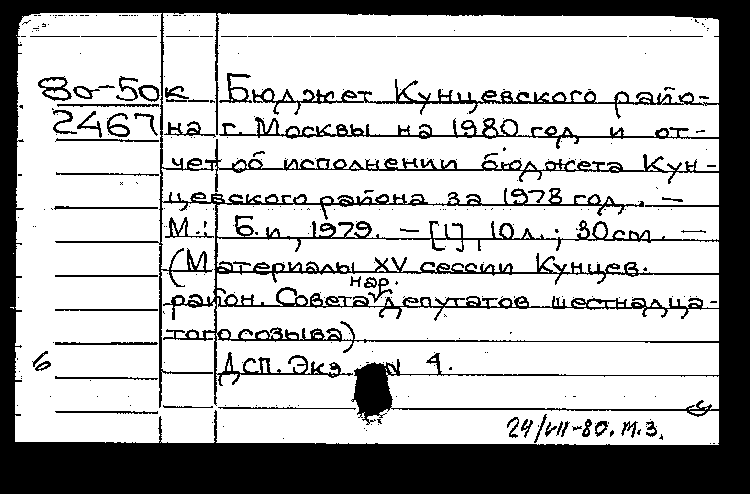 80-50к Бюджет Кунцевского райо-
2467 на г. Москвы на 1980 год и от-
чет об исполнении бюджета Кун-
цевского района за 1978 год. —
М.: Б.и, 1979. — [1], 10л.; 30cm. —
(Материалы XV сессии Кунцев.
нар.
район. Совета депутатов шестнадца-
того созыва).
6 ДСП. Экз N 4.
24/VII-80. М.З.